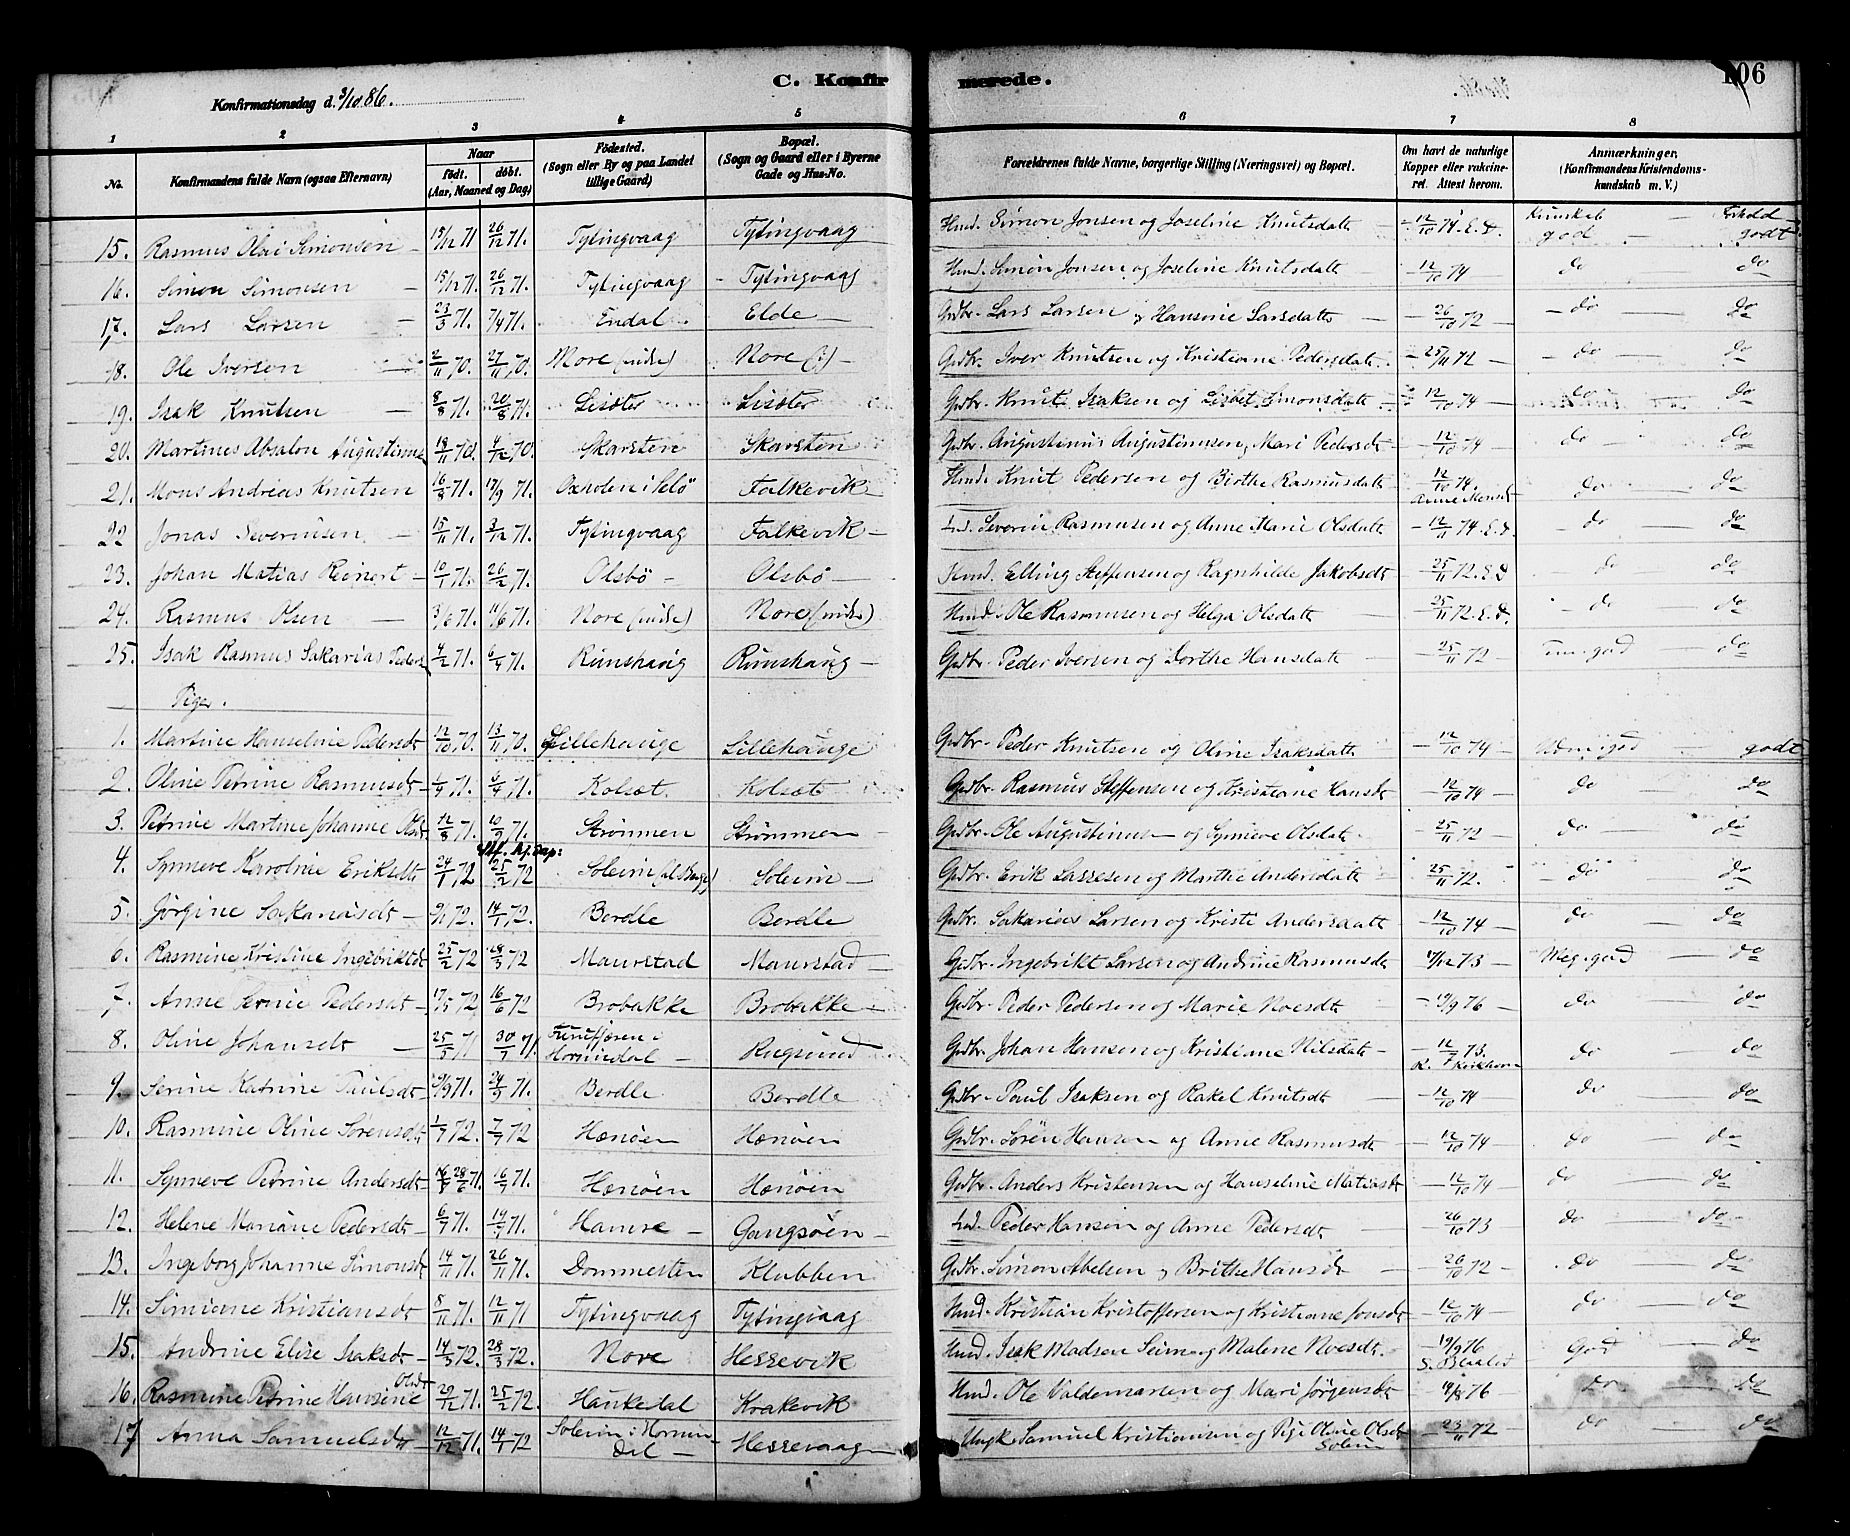 C. Konfirmerede.
106
Konfirmationsdag d. 3/10 86.
1 2 3 4 5 6 7 8
No. Konfirmandens fulde Navn (ogsaa Efternavn) Naar født. døbt. (Aar, Maaned og Dag) Fødested. (Sogn eller By og paa Landet tillige Gaard) Bopæl. (Sogn og Gaard eller i Byerne Gade og Hus-No. Forældrenes fulde Navne, borgerlige Stilling (Næringsvei) og Bopæl. Om havt de naturlige Kopper eller vakcineret. Attest herom. Anmærkninger. (Konfirmandens Kristendomskundskab m. V.)
15. Rasmus Olai Simonsen 15/12 71 26/12 71. Tytingvaag Tytingvaag Hmd. Simon Jonsen og Joseline Knutsdatt 12/10 74. E.D. Kunskab god Forhold godt
16. Simon Simonsen 15/12 71. 26/12 71. Tytingvaag Tytingvaag Hmd. Simon Jonsen og Joseline Knutsdatt 12/10 74 do do
17. Lars Larsen 23/3 71. 7/4 71. Endal Elde Gdbr. Lars Larsen & Hansine Larsdatt 26/10 72 do do
18. Ole Iversen 2/11 70. 27/11 70. Nore (indre) Nore (i) Gdbr. Iver Knutsen og Kristiane Pedersdatt 25/11 72 do do
19. Isak Knutsen 8/8 71. 20/8 71. Lisæter Lisæter Gdbr. Knut Isaksen og Lisbet Simonsdatt 12/10 74 do do
20. Martinus Absalon Augustinus 18/11 70. 4/12 70. Skarsten Skarsten Gdbr. Augustinus Augustinusen, Mari Pedersdt 12/10 74 do do
21. Mons Andreas Knutsen 16/8 71. 17/9 71. Falkevik Hmd. Knut Pedersen og Birthe Rasmusdatt 12/10 74. do do
22 Jonas Severinsen 15/11 71. 3/12 71. Tytingvaag Falkevik Ind. Severin Rasmusen og Anne Marie Olsdatt 12/11 74. E.D. do do
23. Johan Matias Reinert 10/1 71. 26/2 71. Olsbö Olsbö Hmd. Elling Steffensen og Ragnhilde Jakobsdt 25/11 72. E.D do do
24. Rasmus Olsen 3/6 71. 11/6 71. Nore (indre) Nore (indre) Hmd. Ole Rasmusen og Helga Olsdatt 25/11 72. E.D. do do
25. Isak Rasmus Sakarias Peders 4/2 71. 6/4 71. Rimshaug Rimshaug Gdbr. Peder Iversen og Dorthe Hansdatt 25/11 72 do
Piger.
1. Martine Hanseline Pedersdt 12/10 70. 13/11 70. Lillehauge Lillehauge Gdbr. Peder Knutsen og Oline Isaksdatt 12/10 74 godt
2. Oline Petrine Rasmusdt 1/4 71. 6/4 71. Kolsæt Kolsæt Gdbr. Rasmus Steffensen og Kristiane Hansdt 12/10 74 do do
3. Petrine Martine Johanne Olsdt 12/8 71. 10/9 71. Strømmen Strømmen Gdbr. Ole Augustinus og Synneve Olsdatt 25/11 72 do do
4. Synneve Karoline Eriksdt 24/1 72 25/2 72 Soleim Soleim Gdbr. Erik Lassesen og Marthe Andersdatt 25/11 72. do do
5. Jörgine Sakariasdt 9/1 72. 14/1 72. Berdle Berdle Gdbr. Sakarias Larsen og Kristi Andersdatt 12/10 74 do do
6. Rasmine Kristine Ingebriktdt 25/2 72 28/3 72 Maurstad Maurstad Gdbr. Ingebrikt Larsen og Andrine Rasmusdt 17/12 73 Meg. god do
7. Anne Serine Pedersdt 17/5 72 16/6 72 Brobakke Brobakke Gdbr. Peder Pedersen og Marie Noesdt 19/9 76 do do
8. Oline Johansdt 25/5 71 30/7 71. Hornindal Rugsund Gdbr. Johan Hansen og Kristiane Nilsdatt 12/7 73. do do
9. Serine Katrine Paulsdt 9/3 71. 24/3 71. Berdle Berdle Gdbr. Paul Isaksen og Rakel Knutsdt 12/10 74 do do
10. Rasmine Oline Sørensdt 1/7 72. 7/7 72 Hænöen Hænöen Gdbr. Sören Hansen og Anne Rasmusdt 12/10 74 do do
11. Synneve Petrine Andersdt 28/6 71. 16/7 71. Hænöen Hænöen Gdbr. Anders Kristensen og Hanseline Matiasdt 12/10 74 do do
12. Helene Mariane Pedersdt 6/7 71. 14/7 71. Hamre Gangsöen Ind. Peder Hansen og Anne Pedersdt 26/10 73 do do
13. Ingeborg Johanne Simonsdt 14/11 71. 26/11 71. Dommesten Klubben Gdbr. Simon Abelsen & Brithe Hansdt 26/10 72 do do
14. Simiane Kristiansdt 8/11 71. 12/11 71 Tytingvaag Tytingvaag Hmd. Kristian Kristoffersen og Kristiane Jonsdt 12/10 74 do do
15. Andrine Elise Isaksdt 14/3 72. 28/3 72. Nore Hessevik Hmd. Isak Madsen Seim og Malene Noesdt. 19/9 76 God do
16. Rasmine Petrine Hansine Olsdt 29/12 71. 25/2 72. Haukedal Krakevik Hmd. Ole Valdemarsen og Mari Jörgensdt 76 do do
17 Anna Samuelsdt 12/12 71. 14/1 72 Soleim i Hornindal Hessevaag Ungk. Samuel Kristiansen og Pige Oline Olsdt Solem 23/11 72 do do